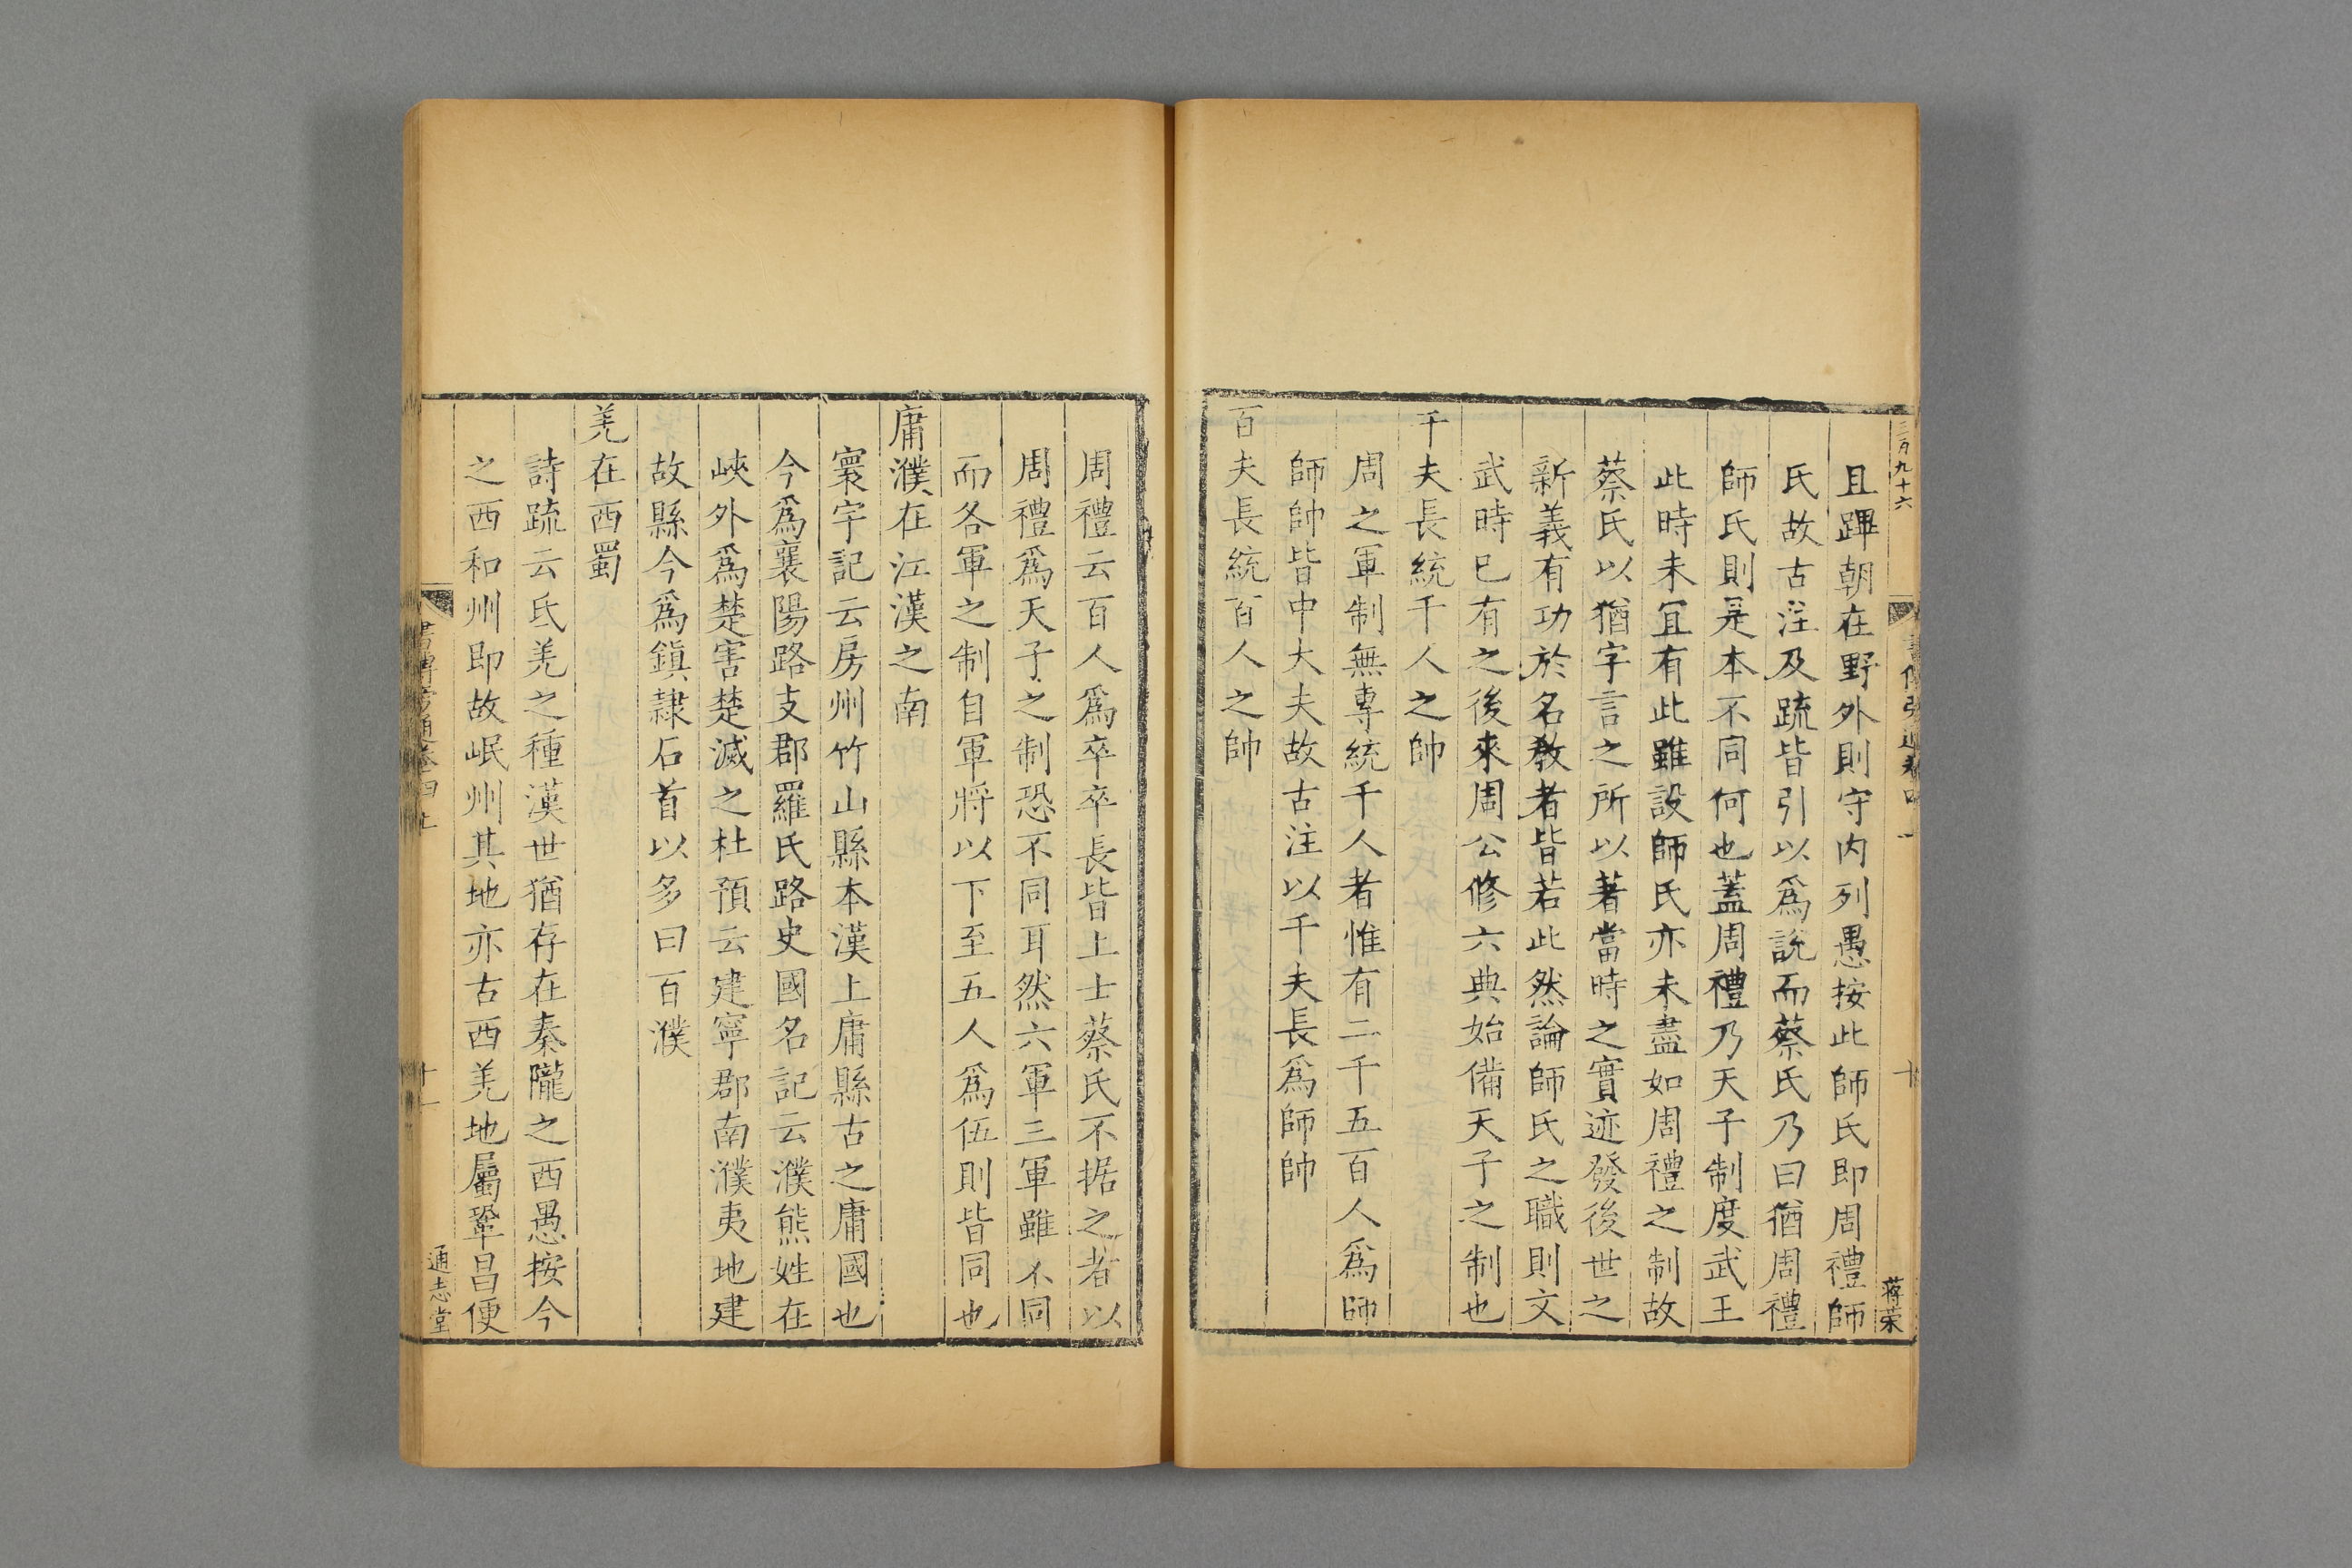 且蹕朝在野外則守内列愚按此師氏即周禮師
氏故古注及疏皆引以爲說而蔡氏乃曰猶周禮
師氏則是本不同何也蓋周禮乃天子制度武王
此時未宜有此雖設師氏亦未盡如周禮之制故
蔡氏以猶字言之所以著當時之實迹發後世之
新義有功於名教者皆若此然論師氏之職則文
武時已有之後來周公修六典始備天子之制也
千夫長統千人之帥
周之軍制無專統千人者惟有二千五百人爲師
師帥皆中大夫故古注以千夫長爲師帥
百夫長統百人之帥
十
蒋荣
周禮云百人爲卒卒長皆上士蔡氏不据之者以
周禮爲天子之制恐不同耳然六軍三軍雖不同
而各軍之制自軍將以下至五人爲伍則皆同也
庸濮在江漢之南
寰宇記云房州竹山縣本漢上庸縣古之庸國也
今爲襄陽路支郡羅氏路史國名記云濮熊姓在
峽外爲楚害楚滅之杜預云建寧郡南濮夷地建
故縣今爲鎮隷石首以多曰百濮
羌在西蜀
詩疏云氐羌之種漢世猶存在秦隴之西愚按今
之西和州即故岷州其地亦古西羌地屬鞏昌便
書傳旁通卷四上
十一
通志堂